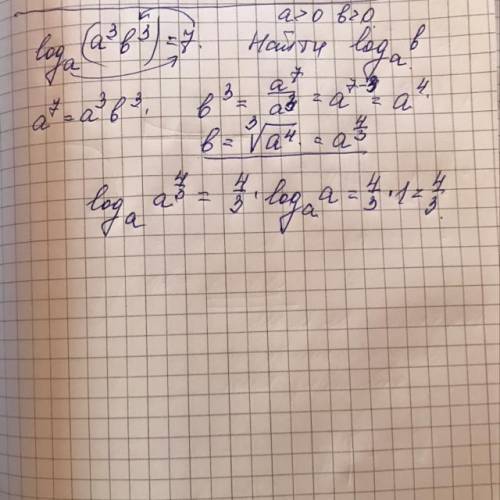 a>0 b>0.
logₐ(a³b³)=7. Найти logₐ b.
a⁷=a³b³. b³ = a⁷/a³ = a⁷⁻³ = a⁴.
b = ∛a⁴ = a^(4/3)
logₐ a^(4/3) = 4/3 · logₐ a = 4/3 · 1 = 4/3.